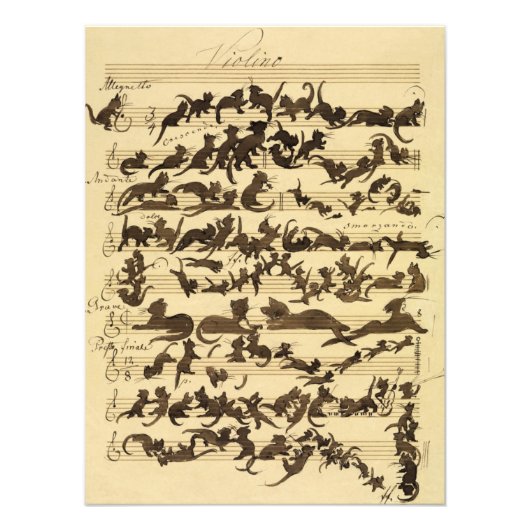 Violino
Allegretto
3
4
Crescendo
Andante
dolce
smorzando
ff.
Grave
Presto finale
12
8
p.
ff.